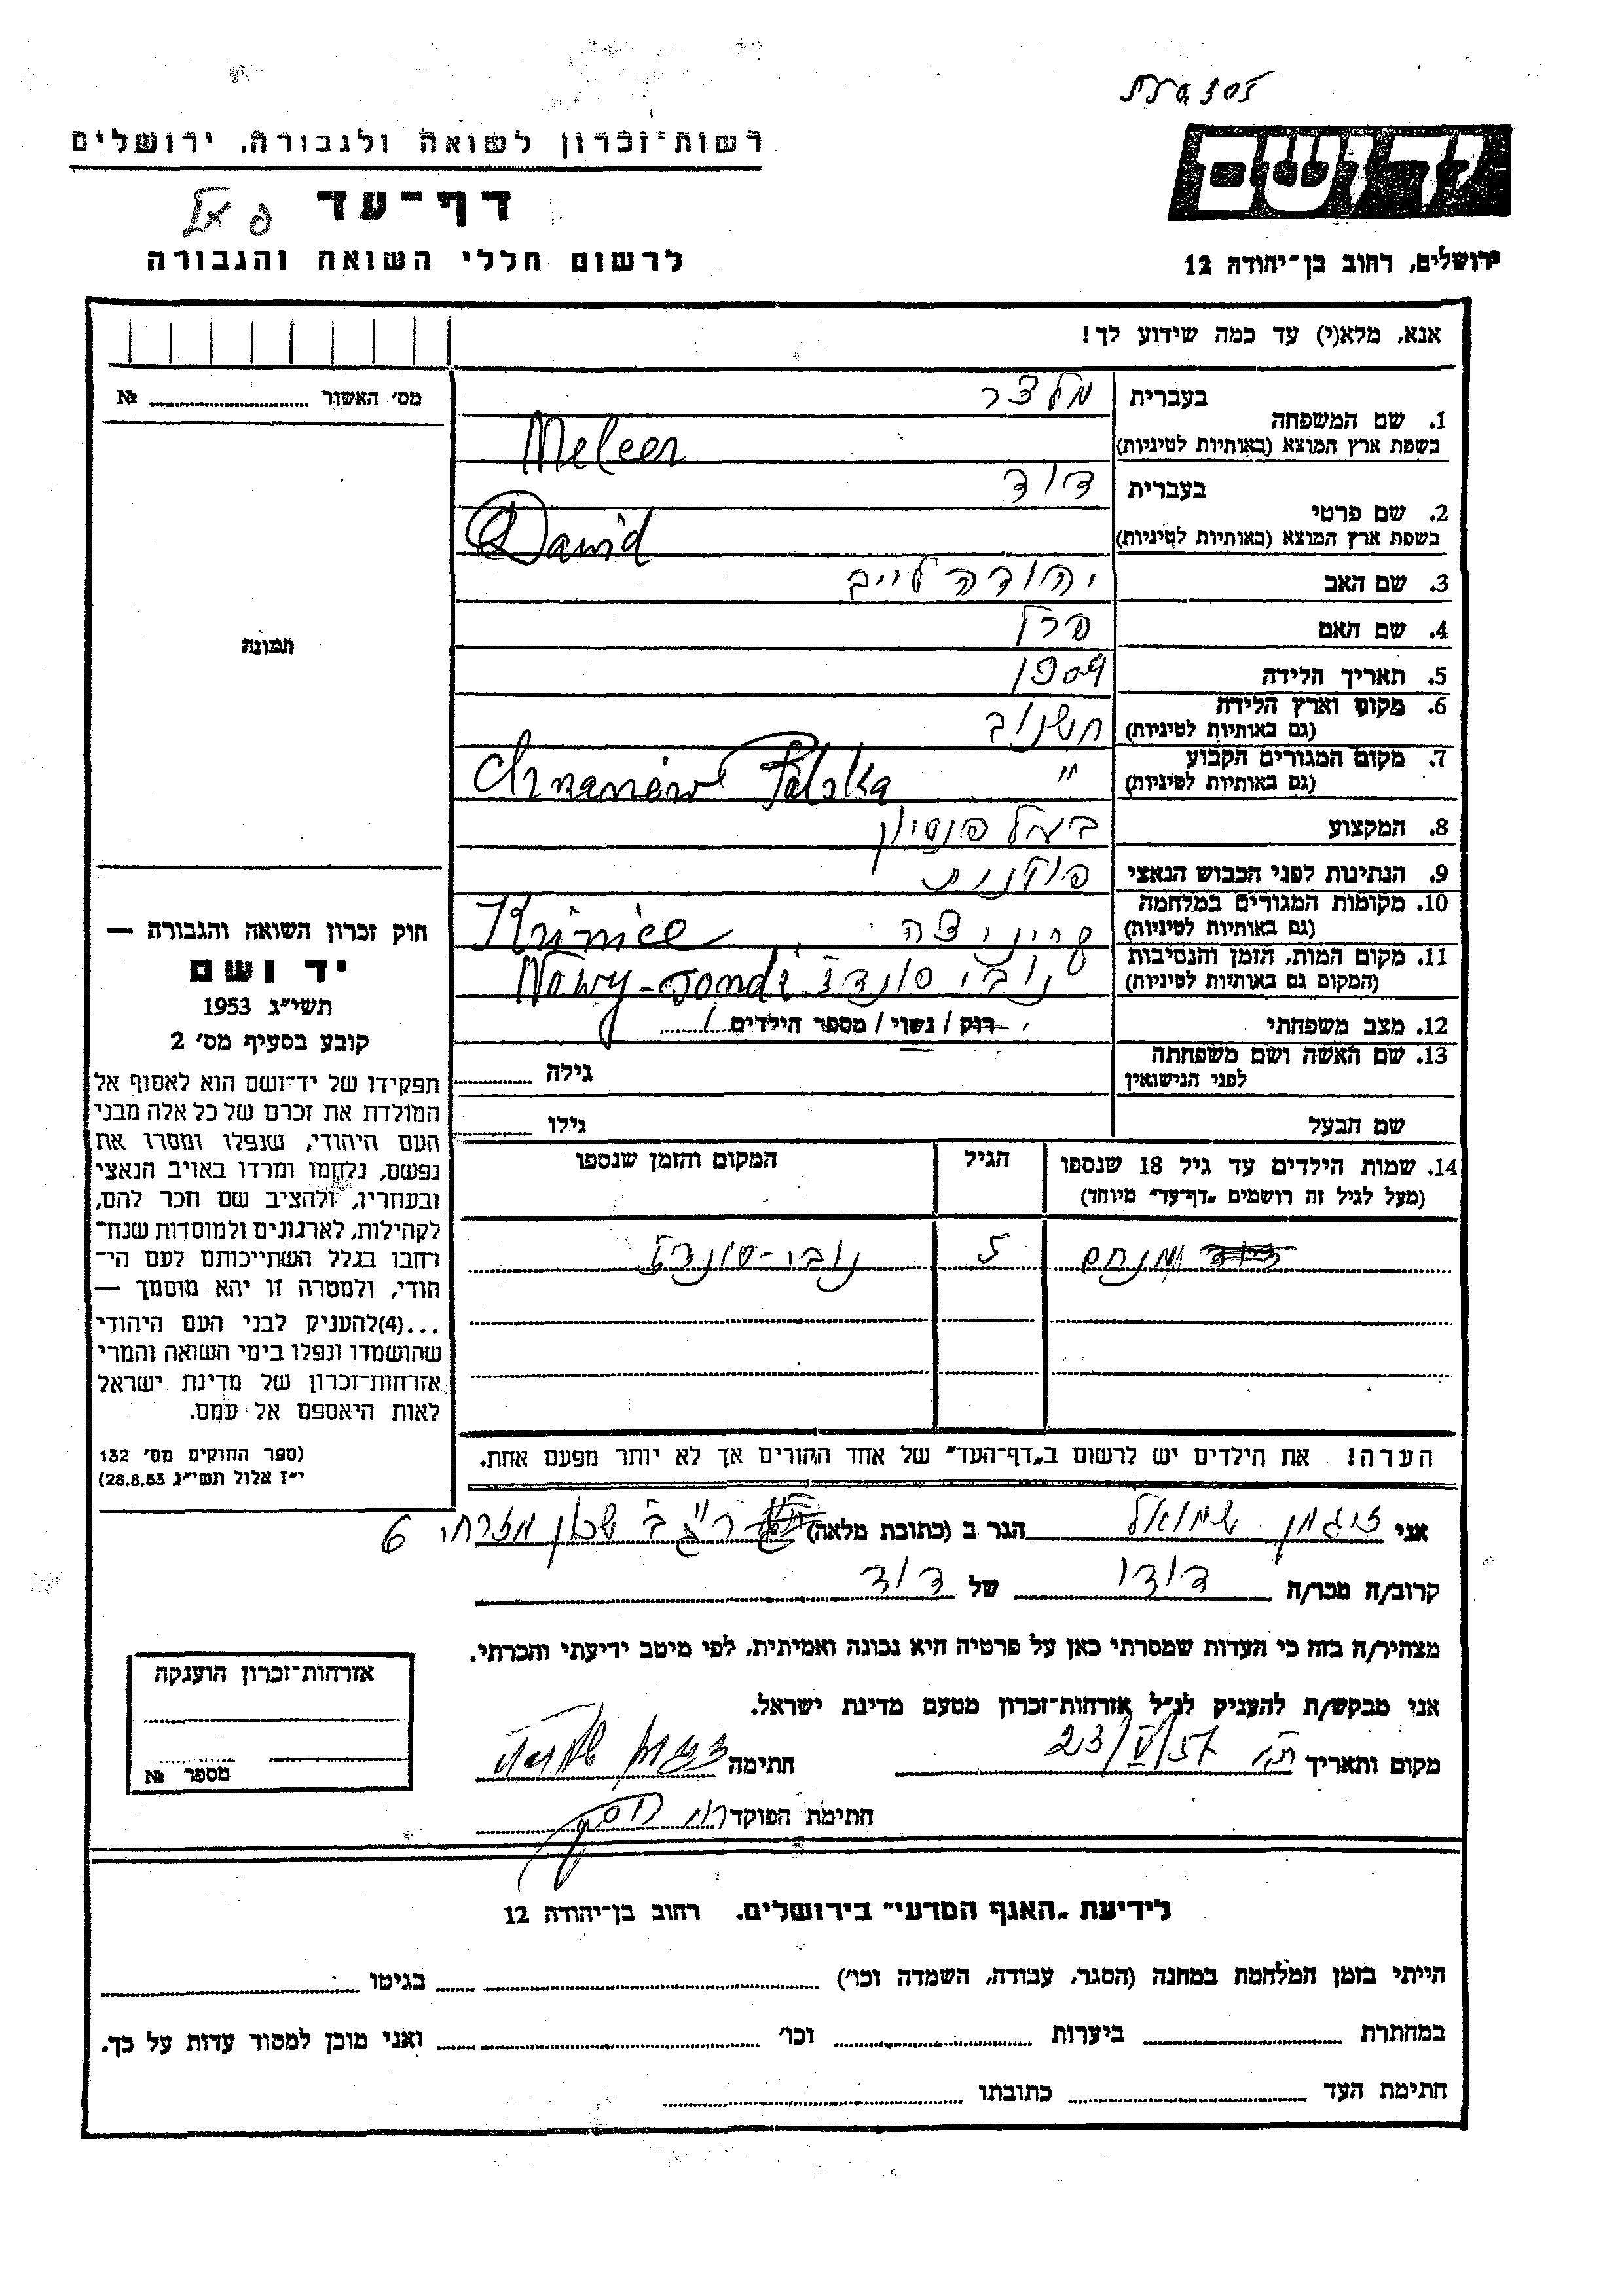 רשות־זכרון לשואה ולגבורה, ירושלים
ידושם
דף־עד
לרשום חללי השואה והגבורה
ירושלים, רחוב בן־יהודה 12
אנא, מלא(י) עד כמה שידוע לך!
מס׳ האשור № ........
1. שם המשפחה
בעברית מלצר
בשפת ארץ המוצא (באותיות לטיניות) Melcer
2. שם פרטי
בעברית דוד
בשפת ארץ המוצא (באותיות לטיניות) Dawid
3. שם האב יהודה לייב
4. שם האם פרל
5. תאריך הלידה 1909
6. מקום וארץ הלידה
(גם באותיות לטיניות) חשנוב
7. מקום המגורים הקבוע
(גם באותיות לטיניות) " Chrzanów Polska
8. המקצוע בעל פנסיון
9. הנתינות לפני הכבוש הנאצי פולנית
10. מקומות המגורים במלחמה
(גם באותיות לטיניות) קריניצה Krinice
11. מקום המות, הזמן והנסיבות
(המקום גם באותיות לטיניות) נובי סונדז Nowy-Sondz
12. מצב משפחתי רווק / נשוי / מספר הילדים 1
13. שם האשה ושם משפחתה
לפני הנישואין גילה
שם הבעל גילו
14. שמות הילדים עד גיל 18 שנספו
(מעל לגיל זה רושמים „דף־עד" מיוחד)
הגיל
המקום והזמן שנספו
מנחם 5 נובי-סונדז
הערה! את הילדים יש לרשום ב„דף־העד" של אחד ההורים אך לא יותר מפעם אחת.
תמונה
חוק זכרון השואה והגבורה —
יד ושם
תשי״ג 1953
קובע בסעיף מס׳ 2
תפקידו של יד־ושם הוא לאסוף אל
המולדת את זכרם של כל אלה מבני
העם היהודי, שנפלו ומסרו את
נפשם, נלחמו ומרדו באויב הנאצי
ובעוזריו, ולהציב שם וזכר להם,
לקהילות, לארגונים ולמוסדות שנח־
רבו בגלל השתייכותם לעם הי־
הודי, ולמטרה זו יהא מוסמך —
...(4)להעניק לבני העם היהודי
שהושמדו ונפלו בימי השואה והמרי
אזרחות־זכרון של מדינת ישראל
לאות היאספם אל עמם.
(ספר החוקים מס׳ 132
י״ז אלול תשי״ג 28.8.53)
אני זיגמן שמואל הגר ב (כתובת מלאה) ר"ג ב שכון מזרחי 6
קרוב/ה מכר/ה דודו של דוד
מצהיר/ה בזה כי העדות שמסרתי כאן על פרטיה היא נכונה ואמיתית, לפי מיטב ידיעתי והכרתי.
אני מבקש/ת להעניק לנ״ל אזרחות־זכרון מטעם מדינת ישראל.
מקום ותאריך 23/V/57 חתימה
חתימת הפוקד
אזרחות־זכרון הוענקה
מספר №
לידיעת „האגף המדעי" בירושלים. רחוב בן־יהודה 12
הייתי בזמן המלחמה במחנה (הסגר, עבודה, השמדה וכו׳) בגיטו
במחתרת ביערות וכו׳ ואני מוכן למסור עדות על כך.
חתימת העד כתובתו